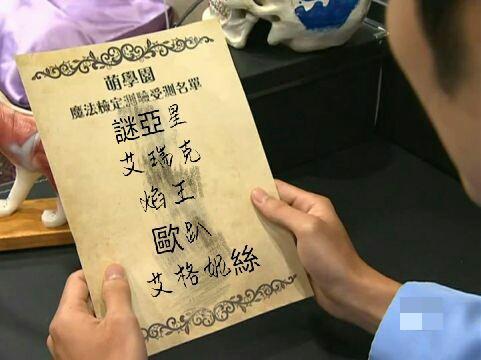 萌學園
魔法檢定測驗受測名單
謎亞星
艾瑞克
焰王
歐趴
艾格妮絲